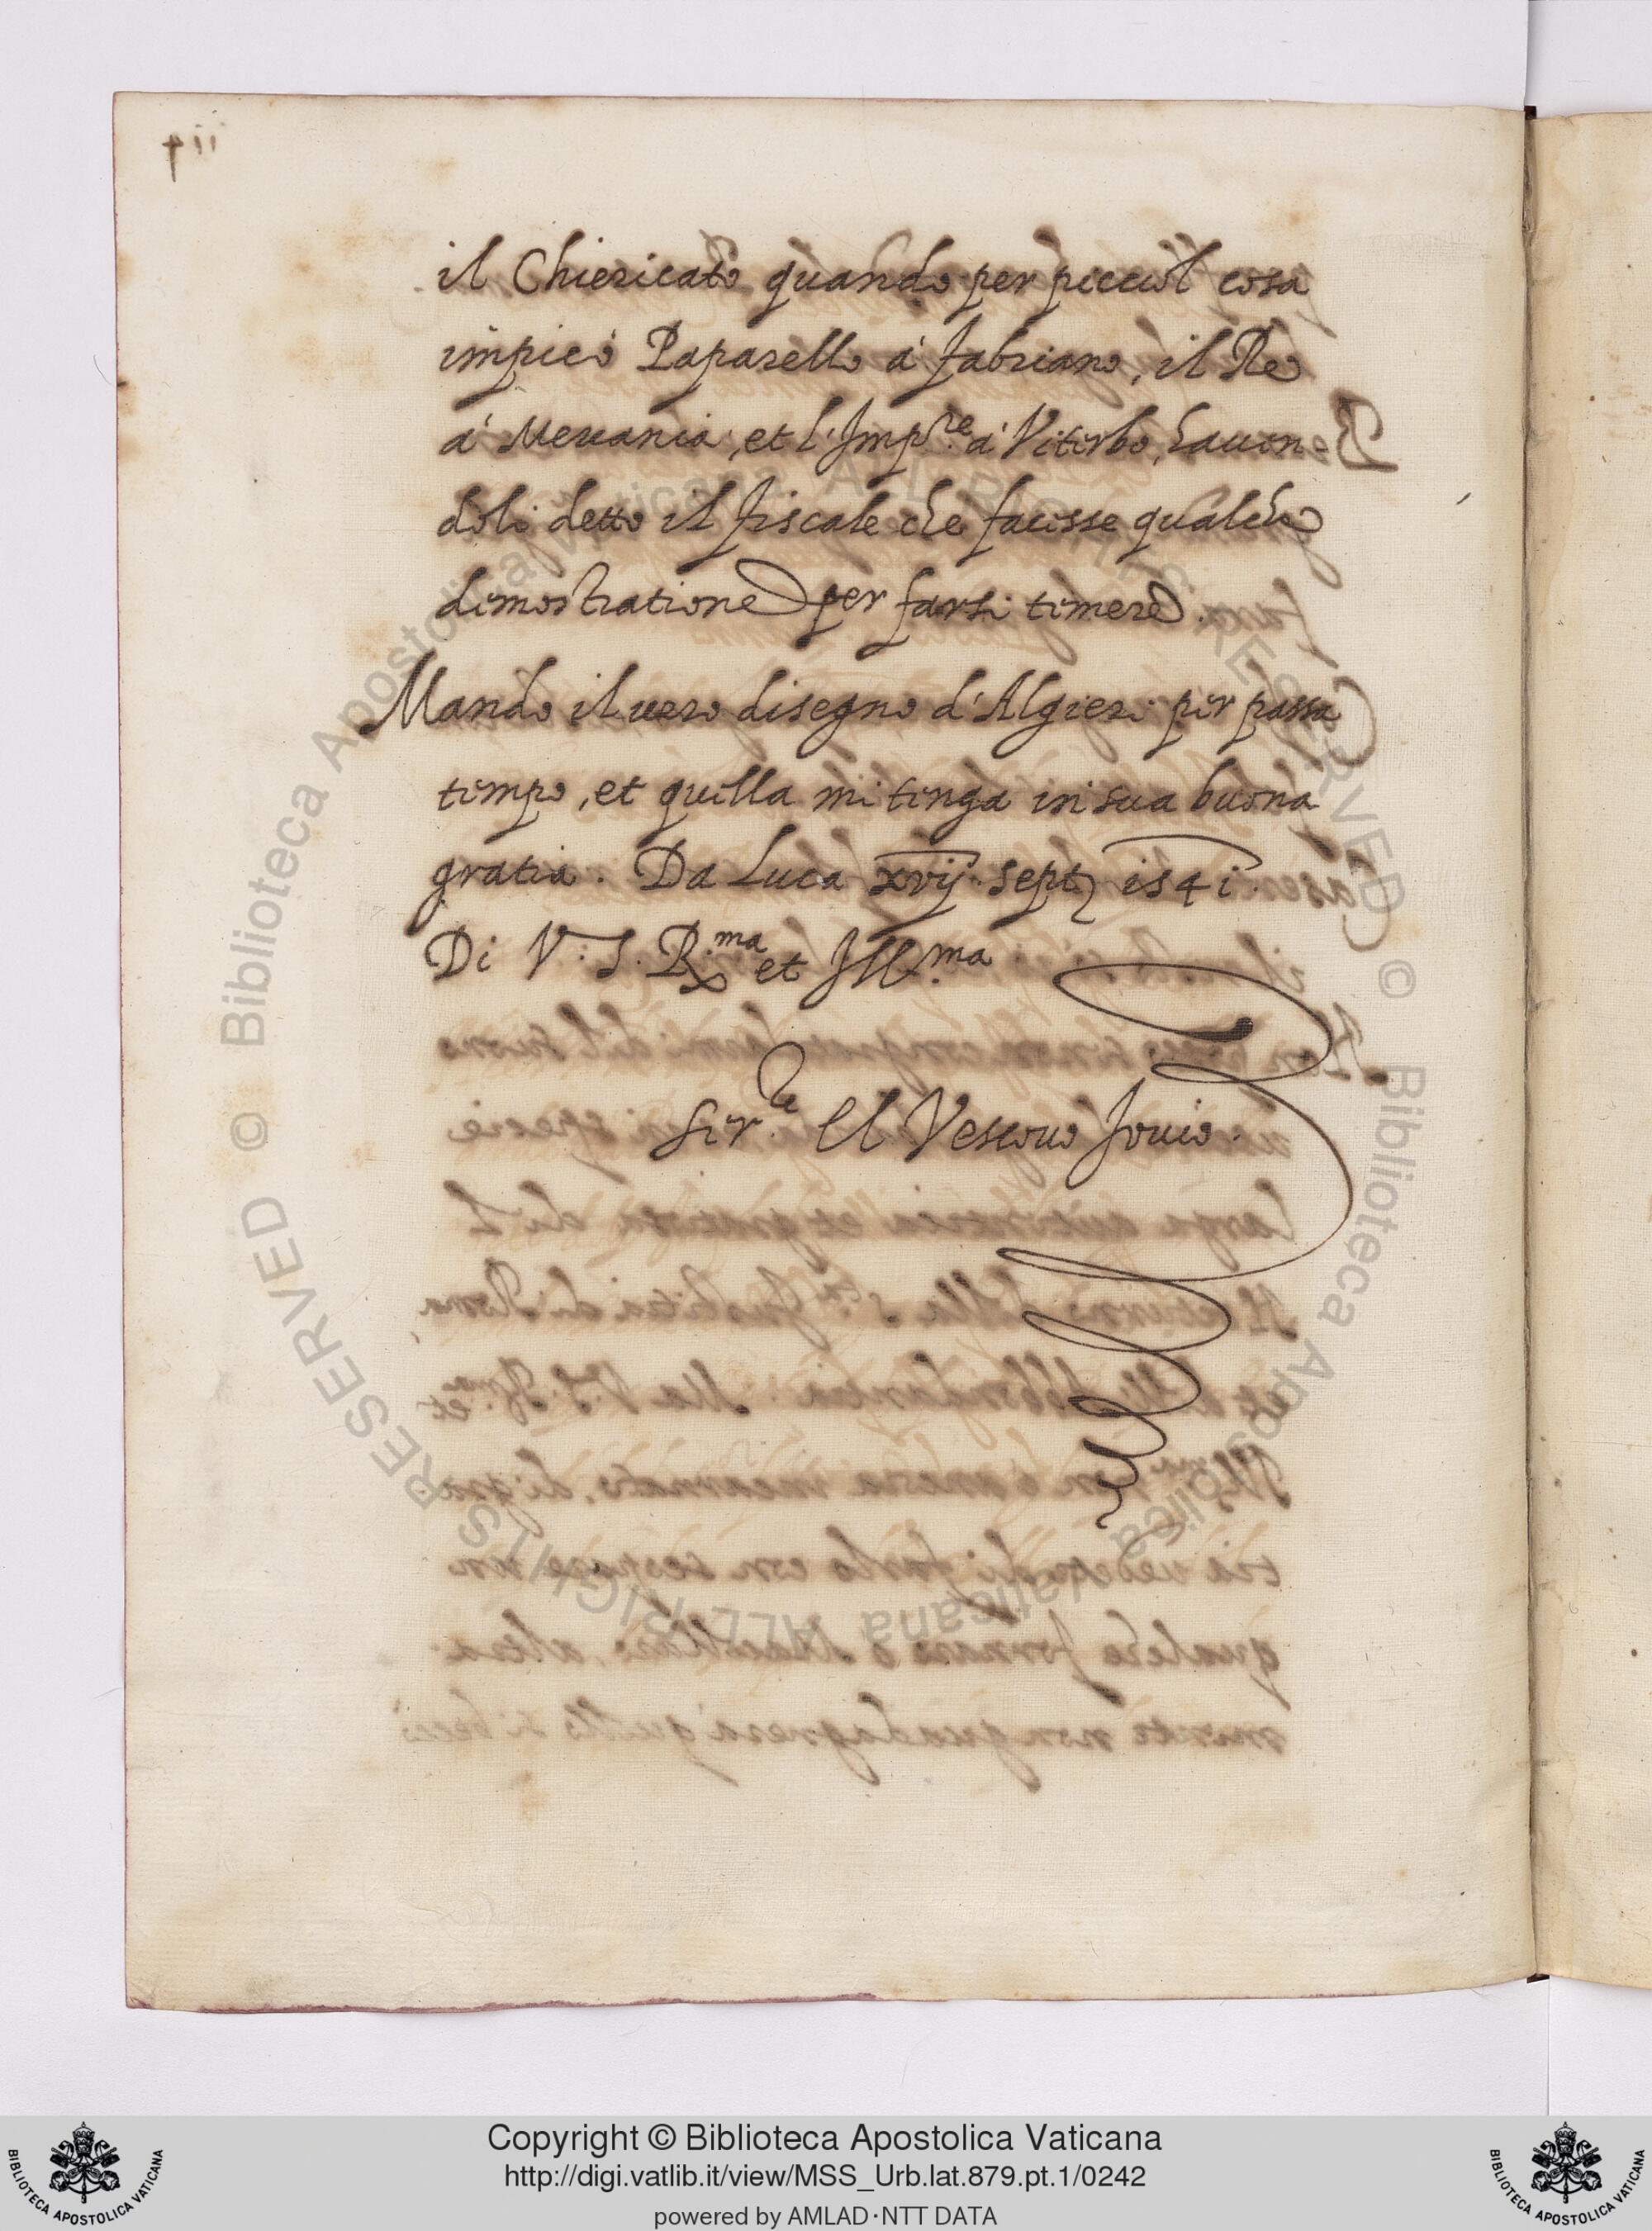 il Chiericato quando per picciol cosa
impicò Paparello à Fabriano, il Re
à Mevania, et l'Imp.re à Viterbo, havon-
doli detto il fiscale che facesse qualche
dimostratione per farsi temere.
Mando il vero disegno d'Algieri per passa
tempo, et quella mi tenga in sua buona
gratia. Da Luca xvij sept 1541.
Di V. S. R.ma et Ill.ma
Ser.re Il Vescovo Jovio.
Copyright © Biblioteca Apostolica Vaticana
http://digi.vatlib.it/view/MSS_Urb.lat.879.pt.1/0242
powered by AMLAD·NTT DATA
BIBLIOTECA APOSTOLICA VATICANA
BIBLIOTECA APOSTOLICA VATICANA
© Biblioteca Apostolica Vaticana ALL RIGHTS RESERVED © Biblioteca Apostolica Vaticana ALL RIGHTS RESERVED